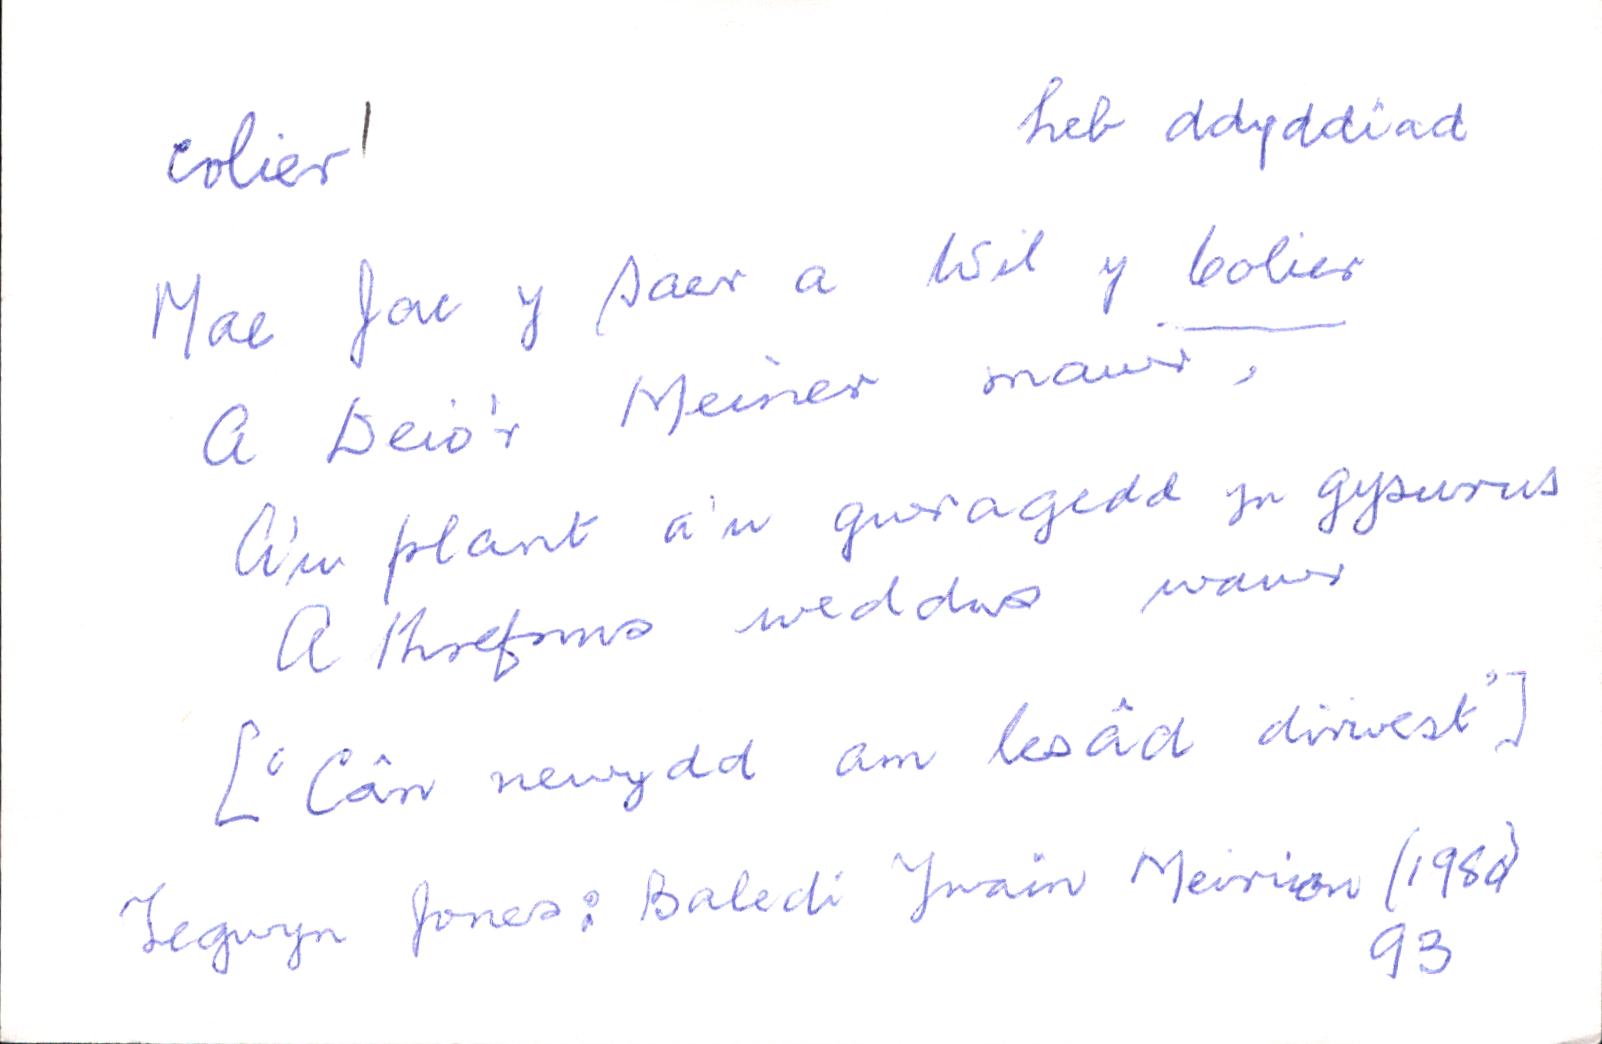 colier¹ heb ddyddiad
Mae Jac y saer a Wil y Colier
A Deio'r Meiner mawr,
A'u plant a'u gwragedd yn gysurus
A threfnus weddus wawr
[‘Cân newydd am lesâd dirwest’]
Tegwyn Jones: Baledi Ywain Meirion (1980)
93